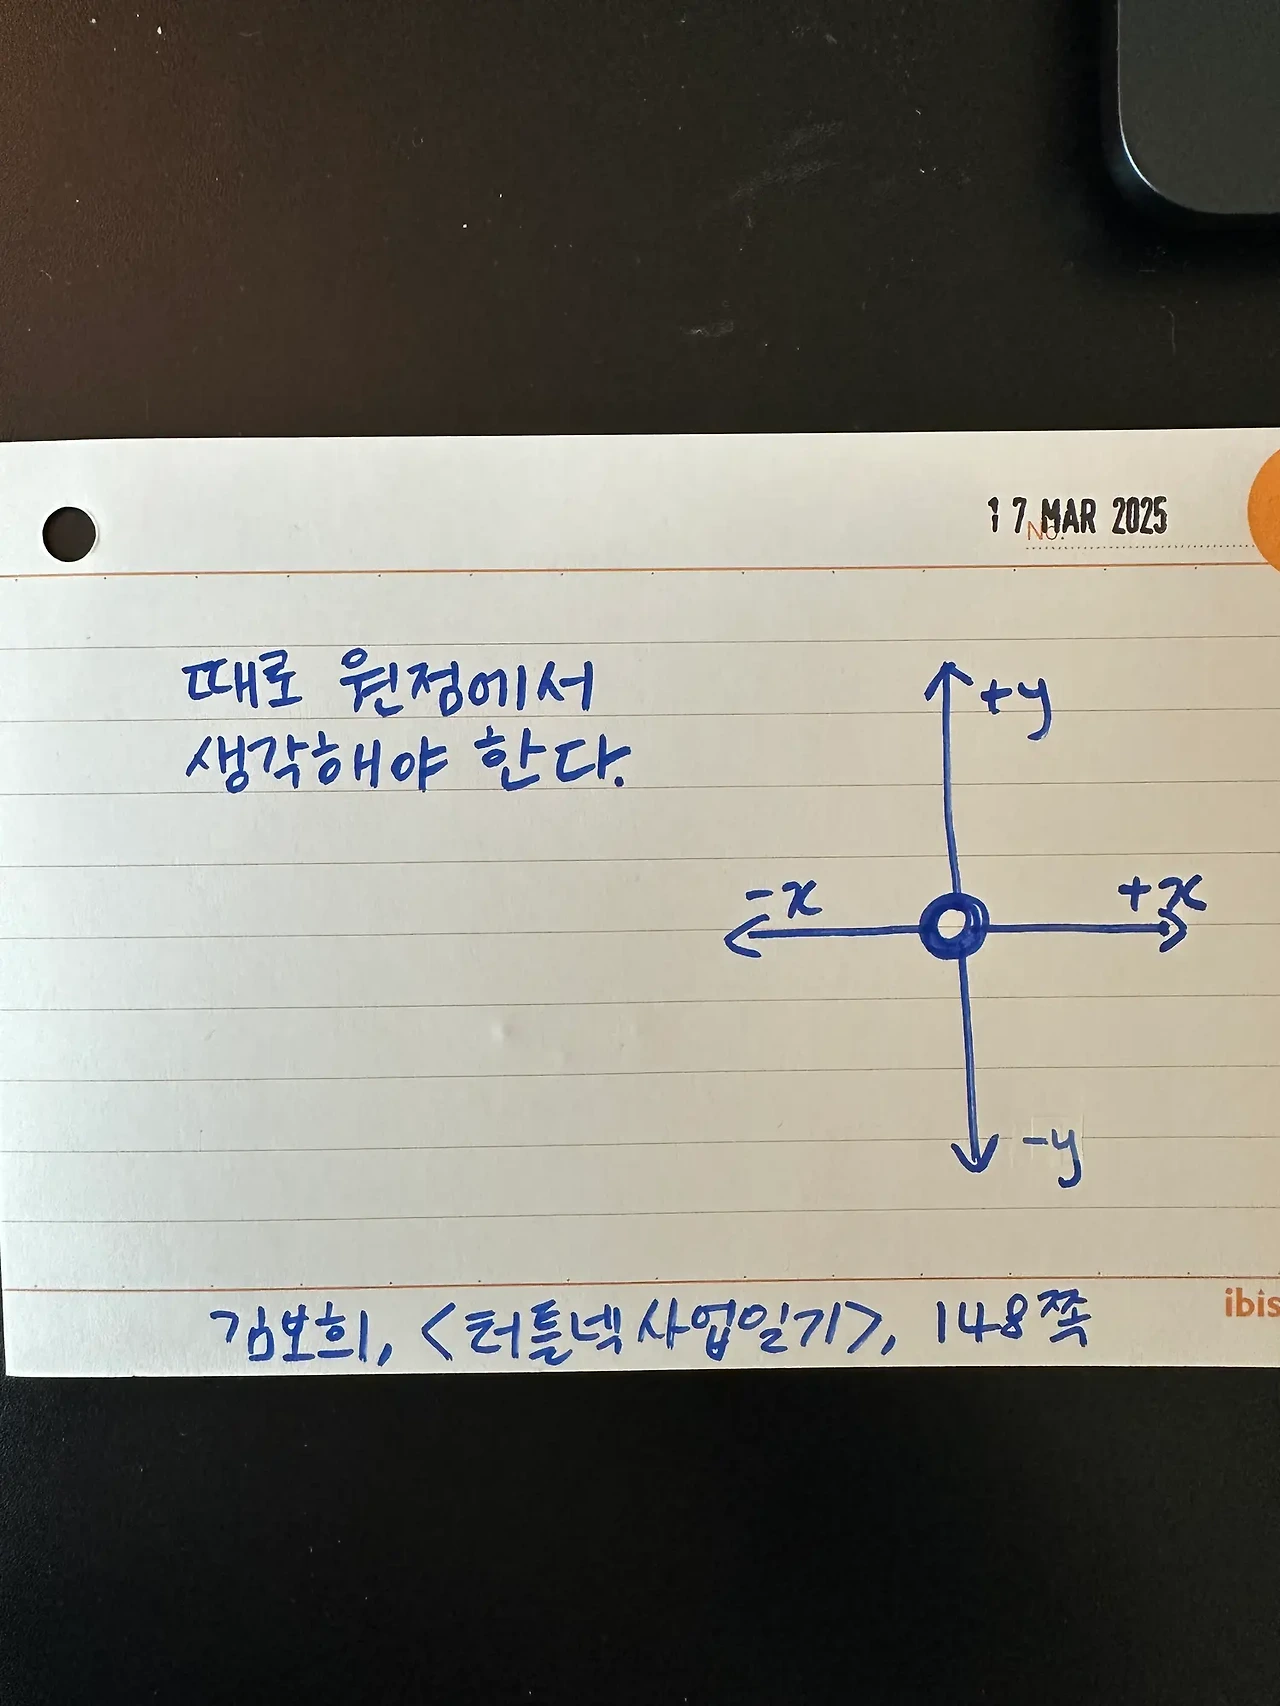 17 MAR 2025
No.
때로 원점에서
생각해야 한다.
+y
-x
+x
-y
김보희, <터틀넥 사업일기>, 148쪽
ibis